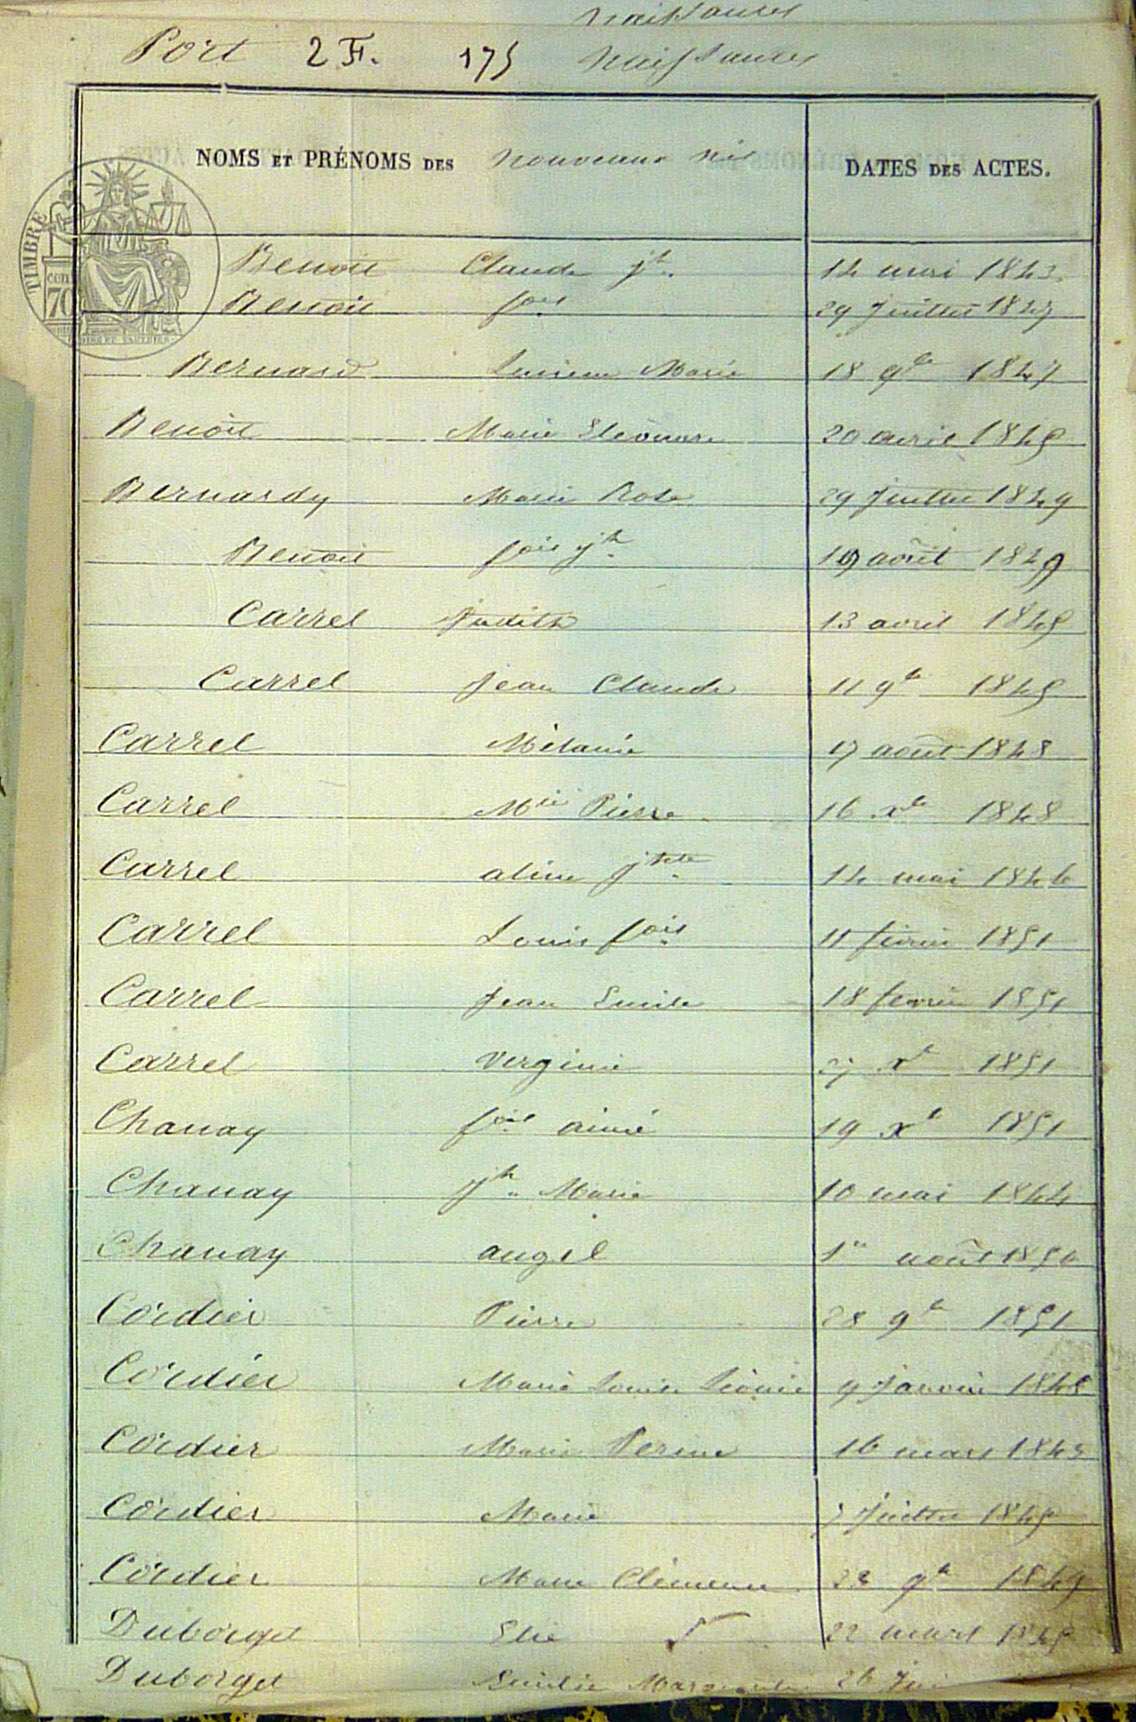 Naissances
Port 2 F. 175 Naissances
NOMS ET PRÉNOMS DES nouveaux nés DATES DES ACTES.
TIMBRE
Benoit Claude jh. 14 mai 1843
Benoit fois 29 Juillet 1847
Bernard Lucien Marie 18 9bre 1847
Benoit Marie Eléonore 20 avril 1845
Bernardy Marie Rose 29 Juillet 1849
Benoit fois jh 19 août 1849
Carrel Judith 13 avril 1845
Carrel Jean Claude 11 9bre 1845
Carrel Mélanie 17 août 1848
Carrel Mie Pierre 16 xbre 1848
Carrel aline jhte 14 mai 1846
Carrel Louis fois 11 février 1851
Carrel Jean Emile 18 février 1851
Carrel Virginie 27 xbre 1851
Chanay fois aimé 19 xbre 1851
Chanay jh Marie 10 mai 1844
Chanay angel 1er août 1850
Cordier Pierre 28 9bre 1851
Cordier Marie Louise Léonie 9 Janvier 1848
Cordier Marie Perine 16 mars 1843
Cordier Marie Juillet
Cordier Marie Clémence 9bre 1849
Duborget Elie 22 mars
Duborget Emilie 26